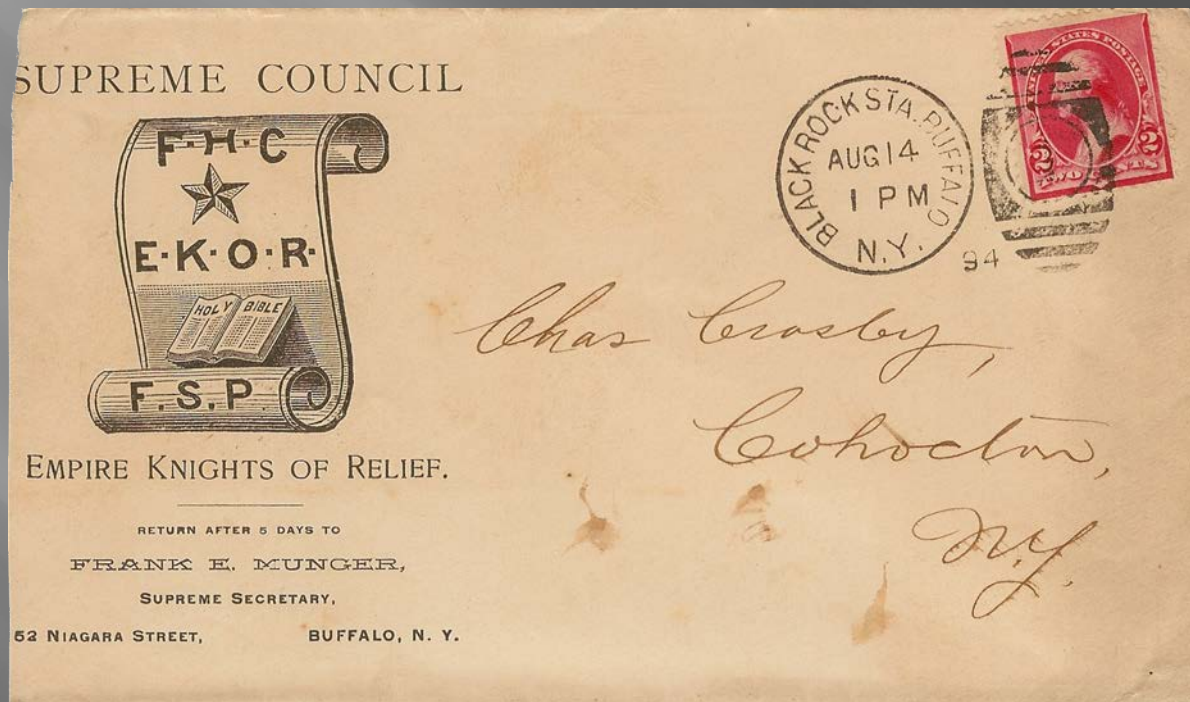 SUPREME COUNCIL
F·H·C
E·K·O·R·
HOLY BIBLE
F.S.P.
EMPIRE KNIGHTS OF RELIEF.
RETURN AFTER 5 DAYS TO
FRANK E. MUNGER,
SUPREME SECRETARY,
52 NIAGARA STREET, BUFFALO, N. Y.
BLACK ROCK STA. BUFFALO
AUG 14
1 PM
N.Y.
94
UNITED STATES POSTAGE
2 2
TWO CENTS
Chas Crosby,
Cohocton,
N.Y.